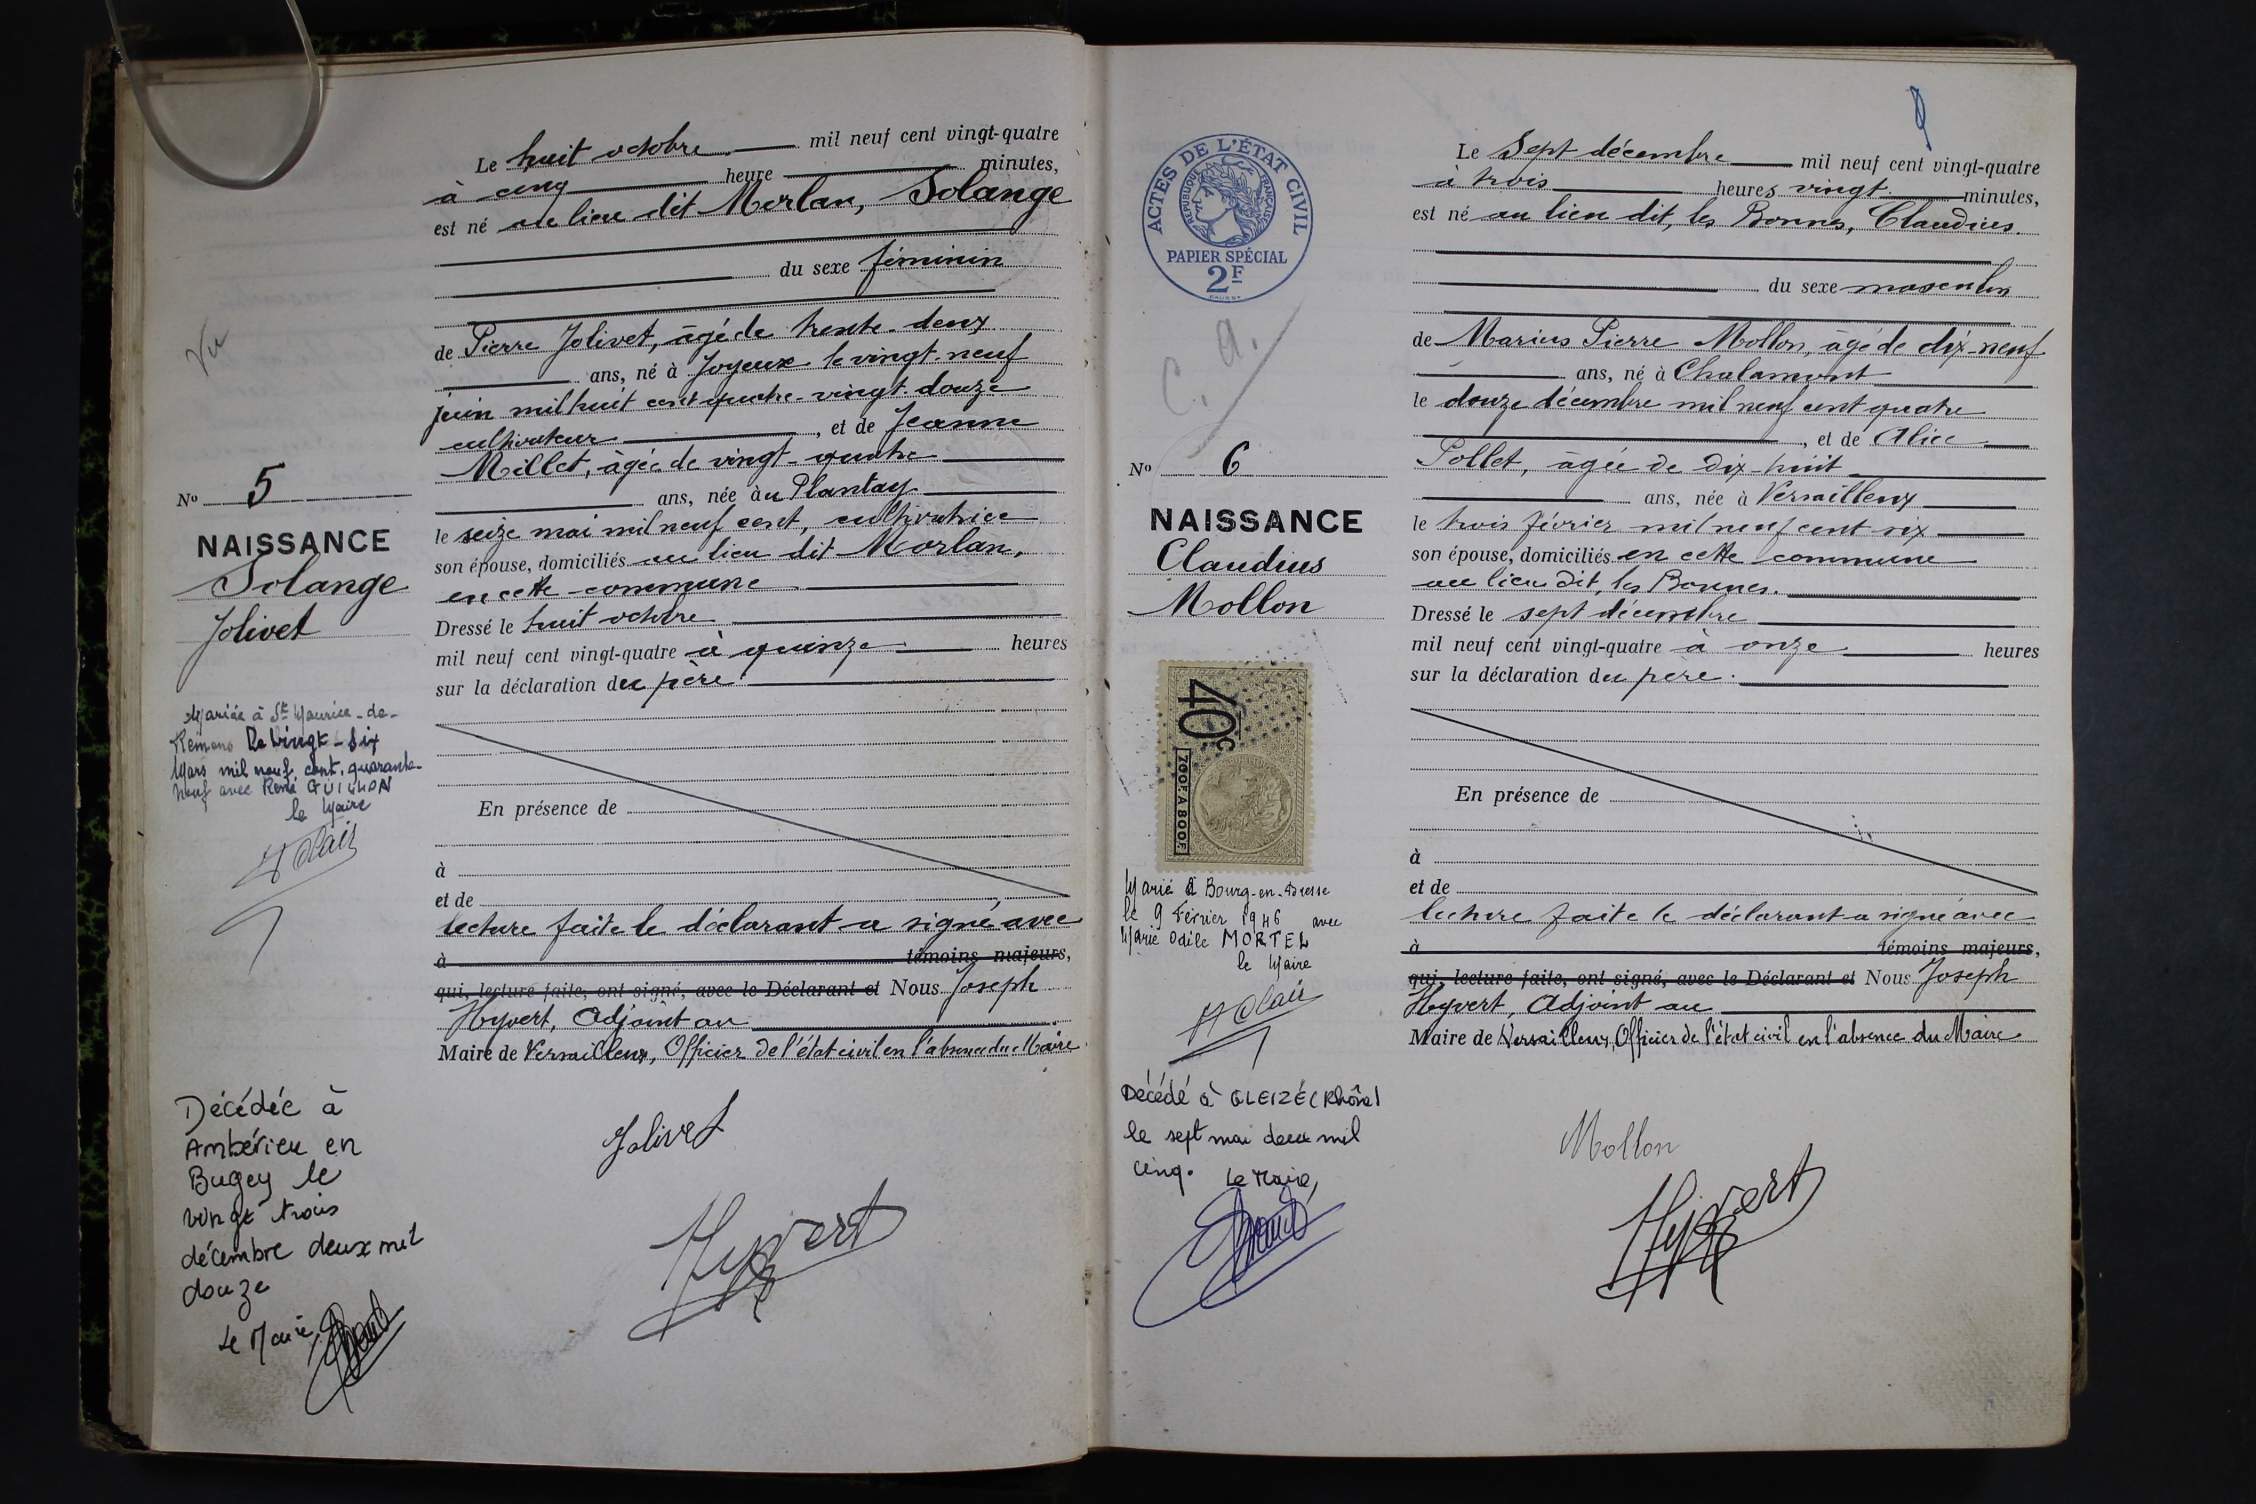 Vu
Nº 5
NAISSANCE
Solange
Jolivet
Mariée à St Maurice-de-
Rémens le vingt-six
Mars mil neuf cent quarante-
neuf avec René GUILLON
le Maire
Décédée à
Ambérieu en
Bugey le
vingt trois
décembre deux mil
douze
Le Maire
Le huit octobre mil neuf cent vingt-quatre
à cinq heure minutes,
est né au lieu dit Morlan, Solange
du sexe féminin
de Pierre Jolivet, âgé de trente-deux
ans, né à Joyeux le vingt-neuf
juin mil huit cent quatre-vingt-douze
cultivateur, et de Jeanne
Millet, âgée de vingt-quatre
ans, née au Plantay
le seize mai mil neuf cent, cultivatrice
son épouse, domiciliés au lieu dit Morlan,
en cette commune
Dressé le huit octobre
mil neuf cent vingt-quatre à quinze heures
sur la déclaration du père.
En présence de
à
et de
lecture faite le déclarant a signé avec
à témoins majeurs,
qui, lecture faite, ont signé, avec le Déclarant et Nous Joseph
Hyvert, Adjoint au
Maire de Versailleux, Officier de l'état civil en l'absence du Maire.
Jolivet
Hyvert
ACTES DE L'ÉTAT CIVIL
RÉPUBLIQUE FRANÇAISE
PAPIER SPÉCIAL
2F
C. A.
Nº 6
NAISSANCE
Claudius
Mollon
40c
700F. A 800F.
Marié à Bourg-en-Bresse
le 9 Février 1946 avec
Marie Odile MORTEL
le Maire
Décédé à GLEIZÉ (Rhône)
le sept mai deux mil
cinq. Le Maire,
Le Sept décembre mil neuf cent vingt-quatre
à trois heures vingt minutes,
est né au lieu dit, les Bonnes, Claudius.
du sexe masculin
de Marius Pierre Mollon, âgé de dix-neuf
ans, né à Chalamont
le douze décembre mil neuf cent quatre
, et de Alice
Pollet, âgée de dix-huit
ans, née à Versailleux
le trois février mil neuf cent six
son épouse, domiciliés en cette commune
au lieu dit, les Bonnes.
Dressé le sept décembre
mil neuf cent vingt-quatre à onze heures
sur la déclaration du père.
En présence de
à
et de
lecture faite le déclarant a signé avec
à témoins majeurs,
qui, lecture faite, ont signé, avec le Déclarant et Nous Joseph
Hyvert, Adjoint au
Maire de Versailleux, Officier de l'état civil en l'absence du Maire
Mollon
Hyvert